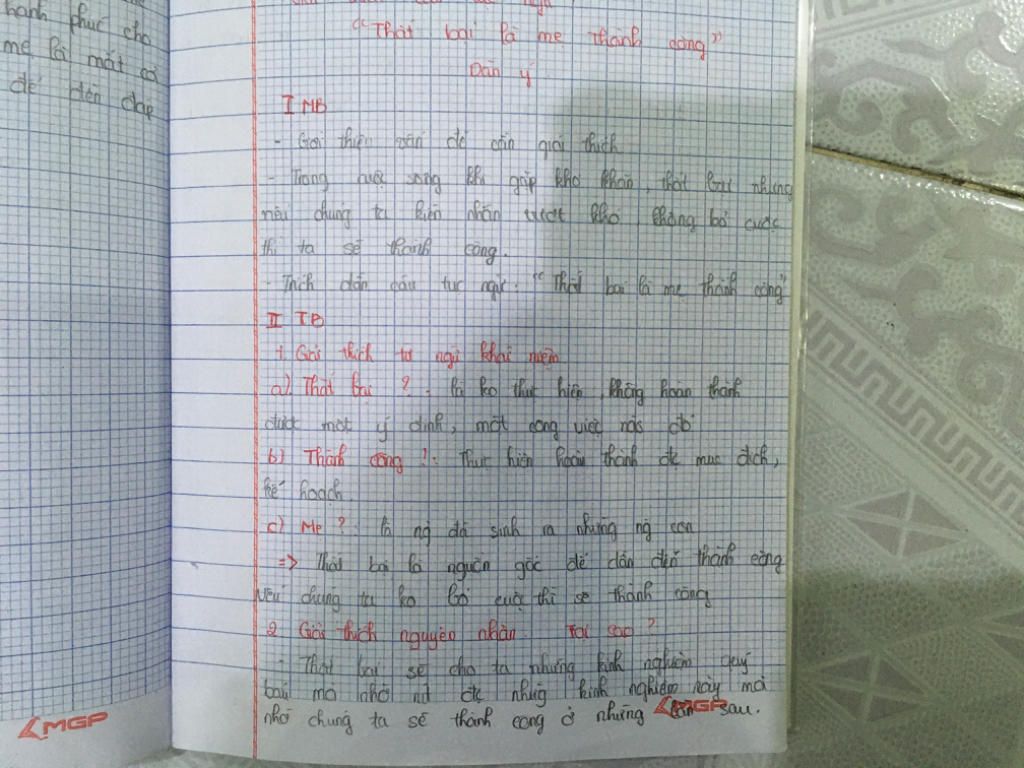 hạnh phúc cho
mẹ là mất cả
để đền đáp
"Thất bại là mẹ thành công"
Dàn ý
I MB
- Giới thiệu vấn đề cần giải thích
- Trong cuộc sống khi gặp khó khăn, thất bại nhưng
nếu chúng ta kiên nhẫn vượt khó không bỏ cuộc
thì ta sẽ thành công.
- Trích dẫn câu tục ngữ: "Thất bại là mẹ thành công"
II TB
1. Giải thích từ ngữ khái niệm
a). Thất bại ? - là ko thực hiện, không hoàn thành
được một ý định, một công việc nào đó
b) Thành công ?: Thực hiện hoàn thành đc mục đích,
kế hoạch.
c) Mẹ ? là ng đã sinh ra những ng con
=> Thất bại là nguồn gốc để dẫn đến thành công
nếu chúng ta ko bỏ cuộc thì sẽ thành công
2 Giải thích nguyên nhân Tại sao ?
- Thất bại sẽ cho ta những kinh nghiệm quý
báu mà nhờ nó đc những kinh nghiệm này mà
nhờ chúng ta sẽ thành công ở những lần sau.
MGP
MGP